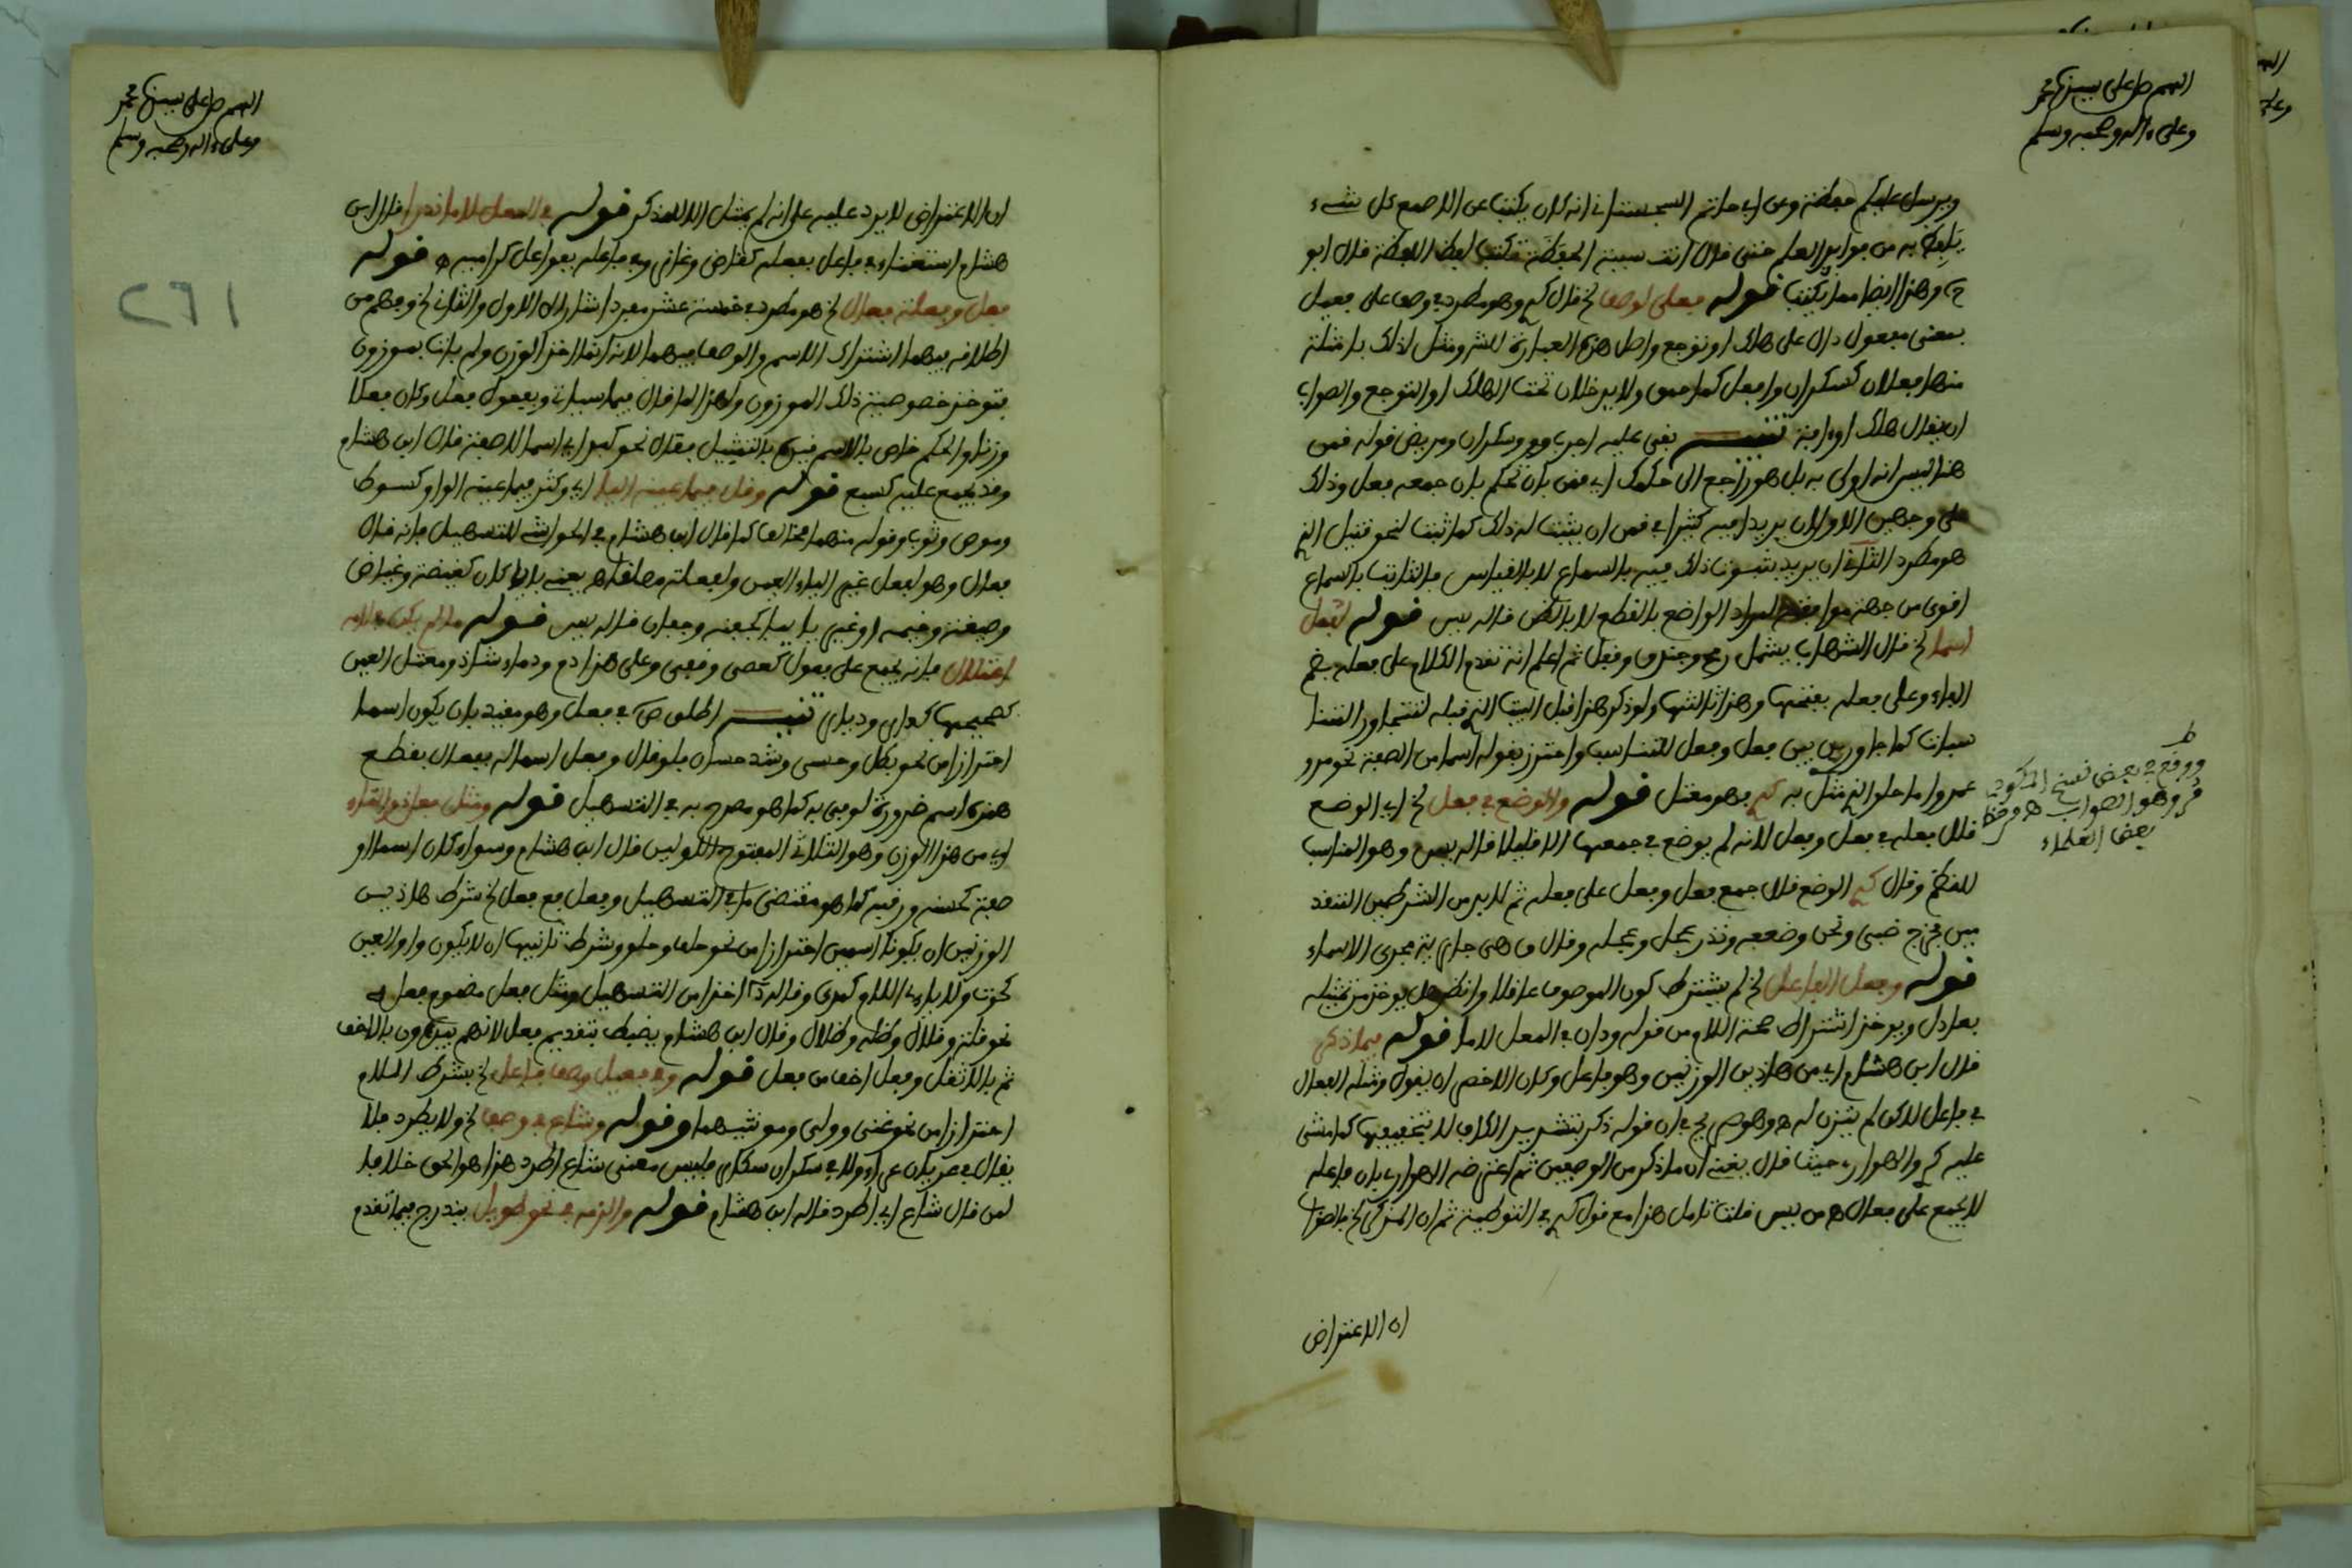 اللهم صل على سيدنا محمد
وعلى ءاله وصحبه وسلم
ويرسل عليكم حفظة وعن ابي حاتم السجستاني انه كان يكتب عن الاصمعي كل شيء
يلفظ به من فوايد العلم حتى قال انت شبيه الحفظة تكتب لفظ اللفظة قال ابو
ح وهذا ايضا مما يكتب قوله فعلى لوصف الخ قال كم وهو مطرد في وصف على فعيل
بمعنى مفعول دال على هلك او توجع واصل هذه العبارة للش ومثل لذلك بامثلة
منها فعلان كسكران وافعل كاحمق ولا يدخلان تحت الهلك او التوجع والصواب
ان يقال هلك او افة تنبيه بقي عليه اجرب وسكران ومريض قوله قمن
هنا ليس انه اولى به بل هو راجع الى حكمك اي قمن بان تحكم بان جمعه فعلى وذلك
على وجهين الاول ان يريد فيه كثيرا في قمن ان يثبت له ذلك كما ثبت لنحو قتيل الذي
هو مطرد الثاني ان يريد ثبوت ذلك فيه بالسماع لا بالقياس فالثابت بالسماع
اقوى من جهة موافقة المراد الواضع بالقطع لا بالظن قاله يس قوله لفعل
اسما الخ قال الشهاب يشمل ثم اعلم انه تقدم الكلام على فعلة بضم
الفاء وعلى فعلة بفتحها وهذا ثالثها ولو ذكر هذا قبل البيت الذي قبله لتتجاور الثلاثة
سيات كما جاور بين فعل وفعل للتناسب واحترز بقوله اسما من الصفة نحو
عمرو اما حلو الذي مثل به كم فهو معتل قوله والوضع في فعل الخ اي الوضع
قلل فعلة في فعل وفعل لانه لم يوضع في جمعها الا قليلا قاله يس وهو المناسب
للنظم وقال كم الوضع قلل جمع فعل وفعل على فعلة ثم لا بد من الشرطين
قوله وفعل لفاعل الخ لم يشترط كون الموصوف عاقلا وانظر هل يوخذ من تمثيله
بعاذل ويوخذ اشتراط صحة اللام من قوله وذان في المعل لاما قوله فيما ذكرا
قال ابن هشام اي من هاذين الوزنين وهو فاعل وكان الاخصر ان يقول ومثله الفعال
في فاعل لاكن لم يتزن له وهو صريح في ان قوله ذكر بتشديد الكاف لا بتخفيفها كما مشى
عليه كم والهواري حيث قال يعني ان ما ذكر من الوصفين ثم اعترضه الهواري بان فاعلة
لا يجمع على فعال من يس قلت تامل هذا مع قول كم في التوطية ثم ان المذكر الخ
ان الاعتراض
ط
ووقع في بعض نسخ المكودي
وهو الصواب من خط
بعض العلماء
اللهم صل على سيدنا محمد
وعلى ءاله وصحبه وسلم
261
ان الاعتراض لا يرد عليه على انه لم يمثل الا للمذكر قوله في المعل لاما ندرا قال ابن
هشام استغناء في فاعل بفعلة كقاض وغاز وفي فاعلة بفواعل كرامية قوله
فعل وفعلة فعال الخ هو مطرد في خمسة عشر مفردا اشار الى الاول والثاني الخ وفهم من
اطلاقه فيهما اشتراك الاسم والوصف فيهما لانه انما اخذ الوزن ولم يات بموزون
فتوخذ خصوصية ذلك الموزون ولهذا لما قال فيما سياتي وبفعول فعل وكان فعلا
وزنا والحكم خاص بالاسم قيده بالتمثيل فقال نحو كبد اي اسما لا صفة قال ابن هشام
وقد يجمع عليه كسبع قوله وقل فيما عينه اليا اي وكثر فيما عينه الواو كسوط
وحوض وثوب وقوله منهما مخالف لما قال ابن هشام في الحواشي للتسهيل فانه قال
فعال وهو لفعل غير اليائي العين ولفعلة مطلقا يعني بالياء كان كغيضة وغياض
وضيعة وخيمة او غير ياء كجفنة وجفان قاله يس قوله ما لم يكن في لامه
اعتلال فانه يجمع على فعول كعصى وقفى وعلى هذا دم ودماء شاذ ومعتل العين
كصحيحها كدار وديار تنبيه اطلق ص في فعل وهو مقيد بان يكون اسما
احترازا من نحو بطل وحسن وشذ حسان فلو قال وفعل اسما له فعال بقطع
همزة اسم ضرورة لوفى به كما هو مصرح به في التسهيل قوله ومثل فعل ذو التاء
اي من هذا الوزن وهو الثلاثي المفتوح الاولين قال ابن هشام وسواء كان اسما او
صفة كحسنة ورقبة كما هو مقتضى ما في التسهيل وفعل مع فعل الخ شرط هاذين
الوزنين ان يكونا اسمين احترازا من نحو جلف وحلو وشرط ثانيهما ان لا يكون واوي العين
كحوت ولا ياءي اللام كمدي وقال زاد اخذا من التسهيل ومثل فعل مضموم فعلة
نحو قلة وقلال وظلة وظلال وقال ابن هشام يضبط بتقديم فعل لانهم يبدءون بالاخف
ثم بالاثقل وفعل اخف من فعل قوله وفي فعيل وصف فاعل الخ بشرط اللام
احترازا من نحو غني وولي وموثنيهما وقوله وشاع في وصف الخ ولا يطرد فلا
يقال في عريان عراء ولا في سكران سكار فليس معنى شاع اطرد هذا هو الحق خلافا
لمن قال شاع اي اطرد قاله ابن هشام قوله والزمه في نحو طويل يندرج فيما تقدم